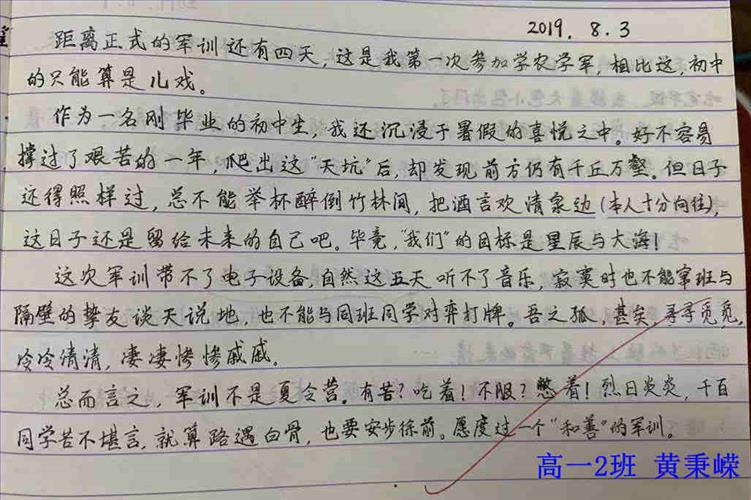 2019.8.3
距离正式的军训还有四天,这是我第一次参加学农学军,相比这,初中
的只能算是儿戏。
作为一名刚毕业的初中生,我还沉浸于暑假的喜悦之中。好不容易
撑过了艰苦的一年,爬出这"天坑"后,却发现前方仍有千丘万壑。但日子
还得照样过,总不能举杯醉倒竹林间,把酒言欢清泉边(本人十分向往),
这日子还是留给未来的自己吧。毕竟,"我们"的目标是星辰与大海!
这次军训带不了电子设备,自然这五天听不了音乐,寂寞时也不能窜班与
隔壁的挚友谈天说地,也不能与同班同学对弈打牌。吾之孤,甚矣,寻寻觅觅,
冷冷清清,凄凄惨惨戚戚。
总而言之,军训不是夏令营。有苦?吃着!不服?憋着!烈日炎炎,千百
同学苦不堪言,就算路遇白骨,也要安步徐前。愿度过一个"和善"的军训。
高一2班 黄秉嵘